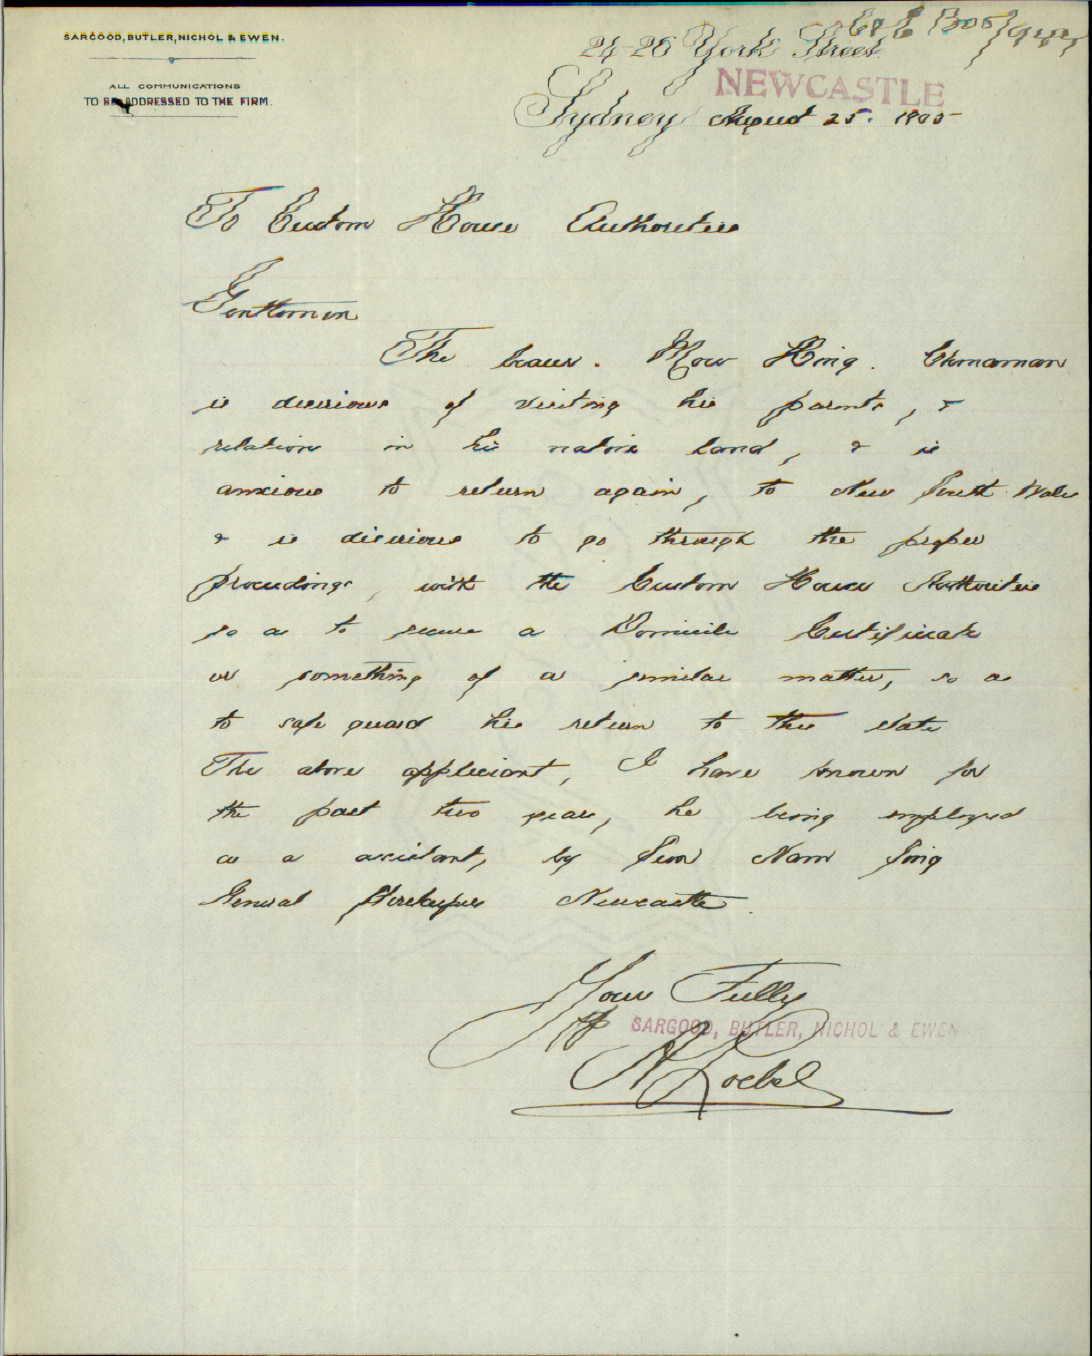 SARGOOD, BUTLER, NICHOL & EWEN.
ALL COMMUNICATIONS
TO BE ADDRESSED TO THE FIRM.
24-26 York Street
NEWCASTLE
Sydney August 25. 1905
To Custom House Authorities
Gentlemen
The bearer. Mow King. Chinaman
is desirious of visiting his parents, &
relations in his native land, & is
anxious to return again, to New South Wales
& is desirious to go through the proper
proceedings, with the Custom House Authorities
so as to secure a Domicile Certificate
or something of a similar matter, so as
to safe guard his return to this state
The above applicant, I have known for
the past two years, he being employed
as a assistant, by Sun Nam Sing
General Storekeeper Newcastle.
Yours Fully
pp SARGOOD, BUTLER, NICHOL & EWEN
Loebel